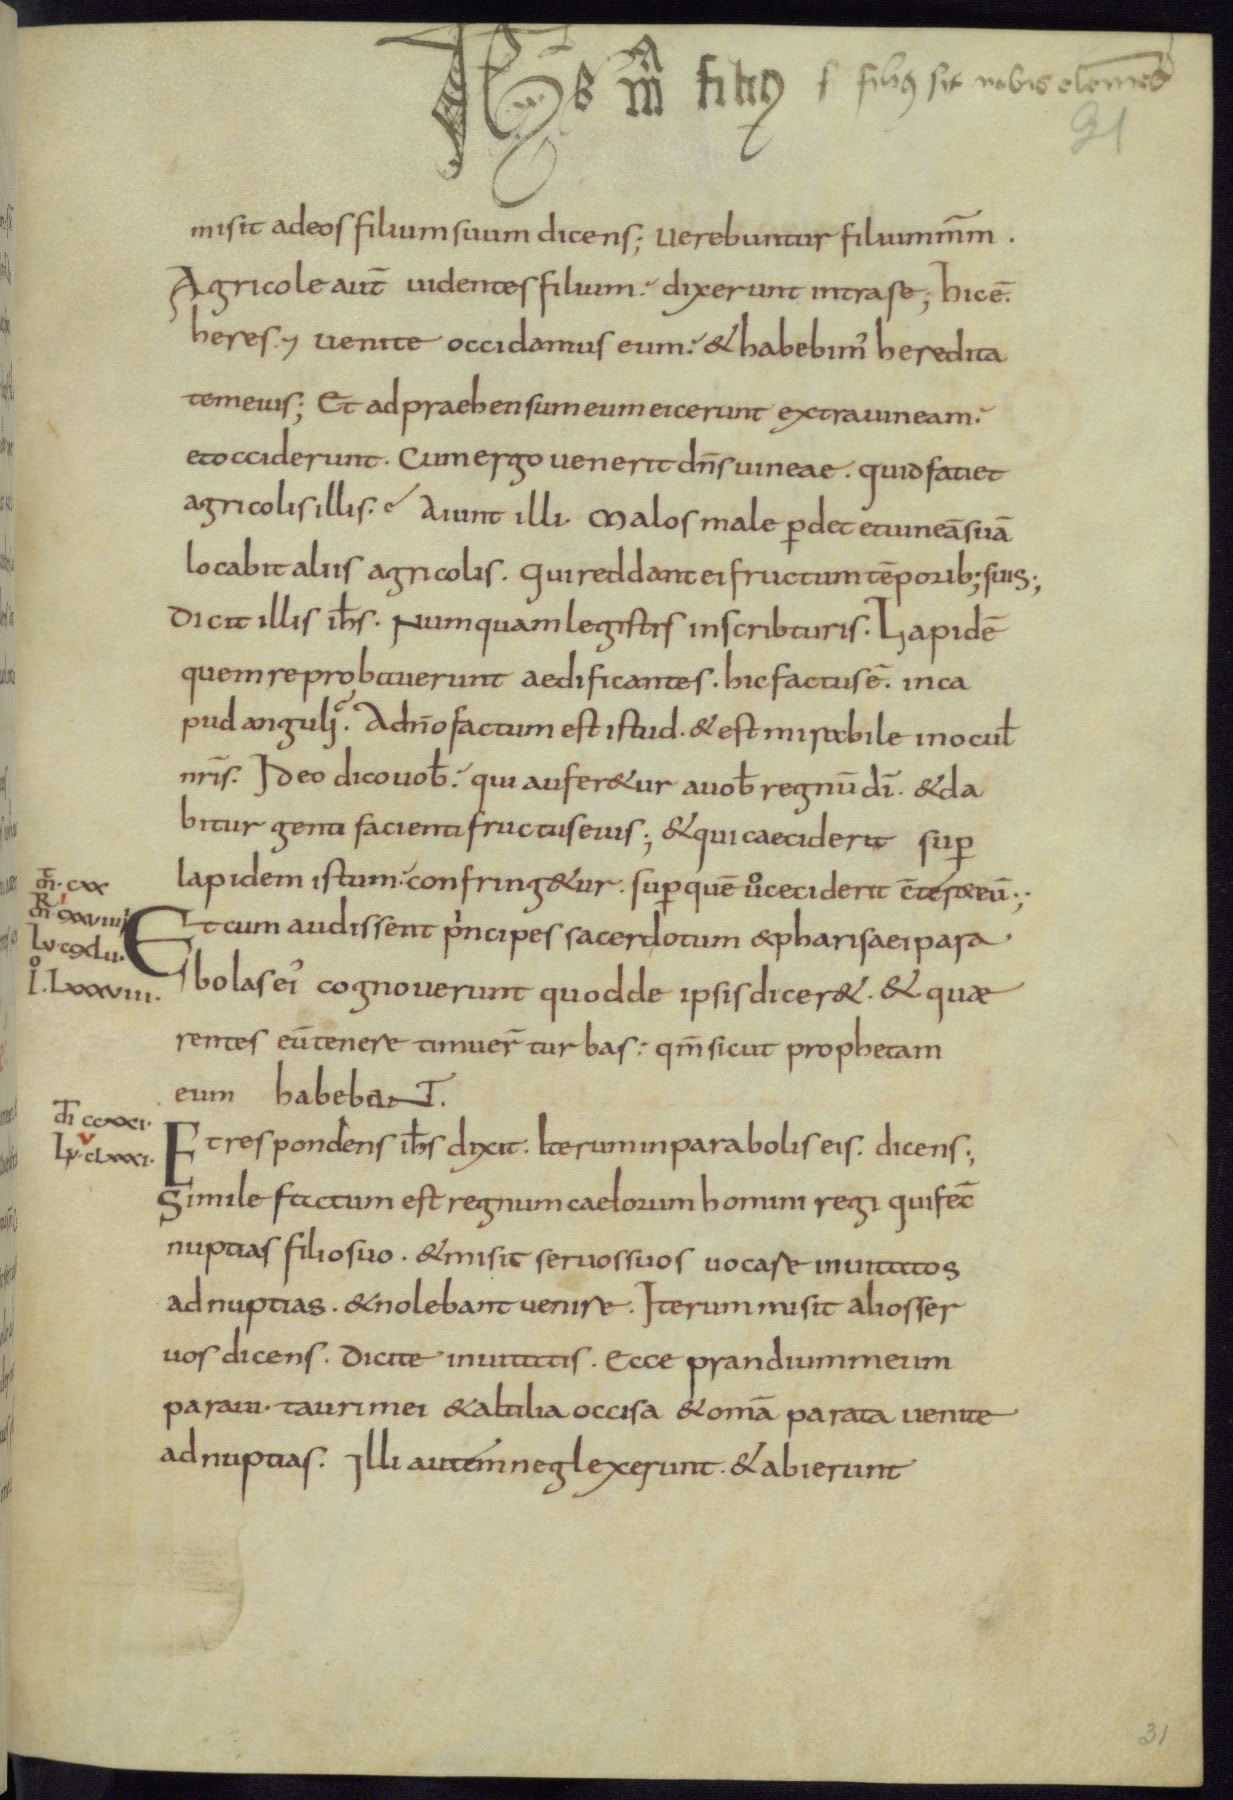 filiꝰ sit nobis clemēs
31
misit ad eos filium suum dicens; uerebuntur filium m̅m .
Agricole aut̄ uidentes filium: dixerunt intra se; hic ē.
heres. uenite occidamus eum: & habebimꝰ heredita
tem eius; Et adpraehensum eum eicerunt extra uineam:
et occiderunt. Cum ergo uenerit dn̄s uineae. quid faciet
agricolis illis. Aiunt illi. Malos male ꝑdet et uineā suā
locabit aliis agricolis. qui reddant ei fructum tēporib; suis;
Dicit illis ih̄s. Numquam legistis in scribturis. Lapidē
quem reprobauerunt aedificantes. hic factus ē. in ca
pud anguli. A dn̄o factum est istud. & est mirabile in ocul̄
nr̄is. Ideo dico uob̄. qui aufer&ur a uob̄ regnū dī. & da
bitur genti facienti fructus eius; & qui caeciderit suꝑ
lapidem istum: confring&ur. suꝑ quē uͦ ceciderit c̄ter& eū;
Et cum audissent pͥncipes sacerdotum & pharisaei para
bolas eiꝰ cognouerunt quod de ipsis dicer&. & quae
rentes eū tenere timuer̄ turbas: qm̄ sicut prophetam
eum habebaNT.
Et respondens ih̄s dixit. Iterum in parabolis eis. dicens;
Simile factum est regnum caelorum homini regi qui fec̄
nuptias filio suo. & misit seruos suos uocare inuitatos
ad nuptias. & nolebant uenire. Iterum misit alios ser
uos dicens. Dicite inuitatis. Ecce prandium meum
paraui. tauri mei & altilia occisa & om̄a parata uenite
ad nuptias. Illi autem neglexerunt. & abierunt
cxx
Lu. ccxlii.
Io. Lxxxviii.
ccxxi.
Lu. cLxxxi.
31